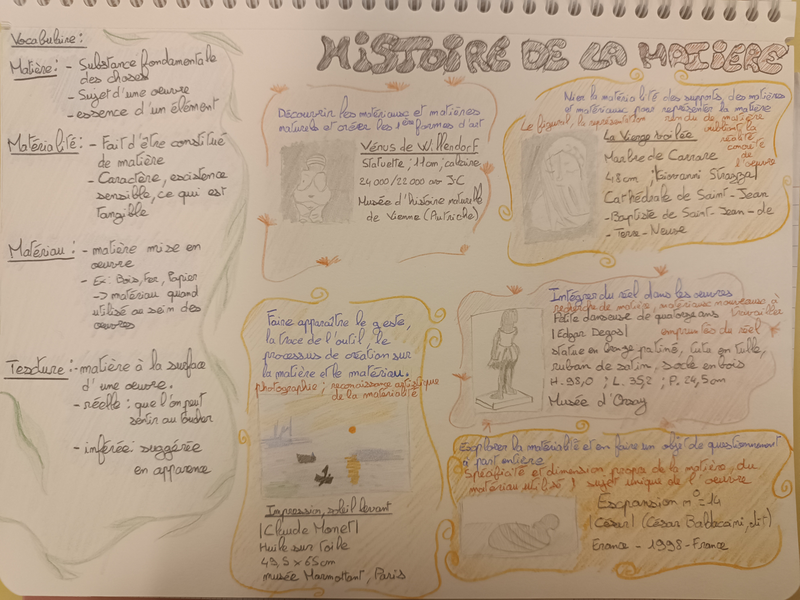 HISTOIRE DE LA MATIERE
Vocabulaire :
Matière : - Substance fondamentale
des choses
- Sujet d'une œuvre
- essence d'un élément
Matérialité : - Fait d'être constitué
de matière
- Caractère, existence
sensible, ce qui est
tangible
Matériau : - matière mise en
œuvre
- Ex : Bois, Fer, Papier
-> matériau quand
utilisé au sein des
œuvres
Texture : - matière à la surface
d'une œuvre.
- réelle : que l'on peut
sentir au toucher
- inférée : suggérée
en apparence
Découvrir les matériaux et matières
naturels et créer les 1ères formes d'art
Vénus de Willendorf
Statuette ; 11cm ; calcaire
24 000/22 000 av J.C
Musée d'histoire naturelle
de Vienne (Autriche)
Nier la matérialité des supports, des matières
et matériaux pour représenter la matière
Le figural, la représentation
rendu de matière
oubliant la
réalité
concrète
de
l'œuvre
La Vierge voilée
Marbre de Carrare
48cm ; |Giovanni Strazza|
Cathédrale de Saint-Jean
-Baptiste de Saint-Jean-de
-Terre-Neuve
Faire apparaître le geste,
la trace de l'outil, le
processus de création sur
la matière et le matériau.
photographie ; reconnaissance artistique
de la matérialité
Impression, soleil levant
|Claude Monet|
Huile sur toile
49,5 x 65cm
musée Marmottant, Paris
Intégrer du réel dans les œuvres
recherche de matière, matériaux nouveaux à
travailler
Petite danseuse de quatorze ans
|Edgar Degas| empruntés du réel
statue en bronze patiné, tutu en tulle,
ruban de satin, socle en bois
H. 98,0 ; L. 35,2 ; P. 24,5cm
Musée d'Orsay
Explorer la matérialité et en faire un objet de questionnement
à part entière
Spécificité et dimension propre de la matière, du
matériau utilisé / sujet unique de l'œuvre
Expansion n°14
|César| (César Baldaccini, dit)
France - 1998 - France